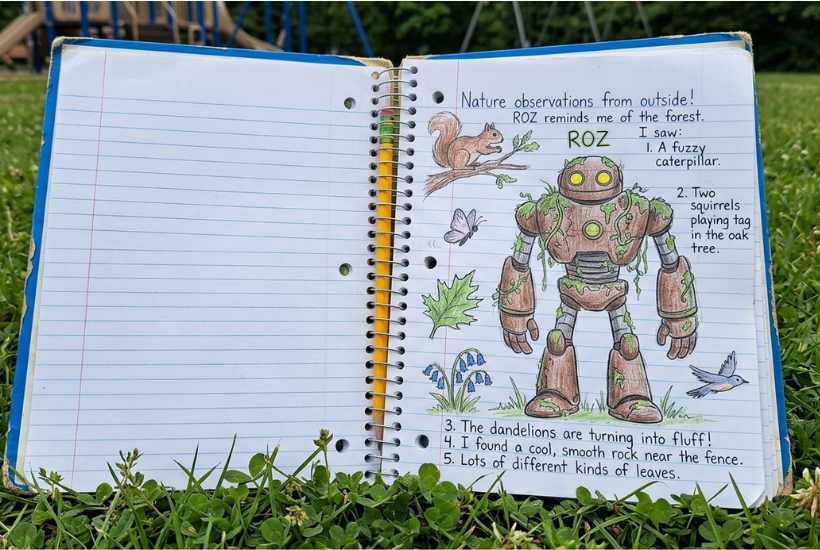 Nature observations from outside!
ROZ reminds me of the forest.
ROZ
I saw:
1. A fuzzy
caterpillar.
2. Two
squirrels
playing tag
in the oak
tree.
3. The dandelions are turning into fluff!
4. I found a cool, smooth rock near the fence.
5. Lots of different kinds of leaves.